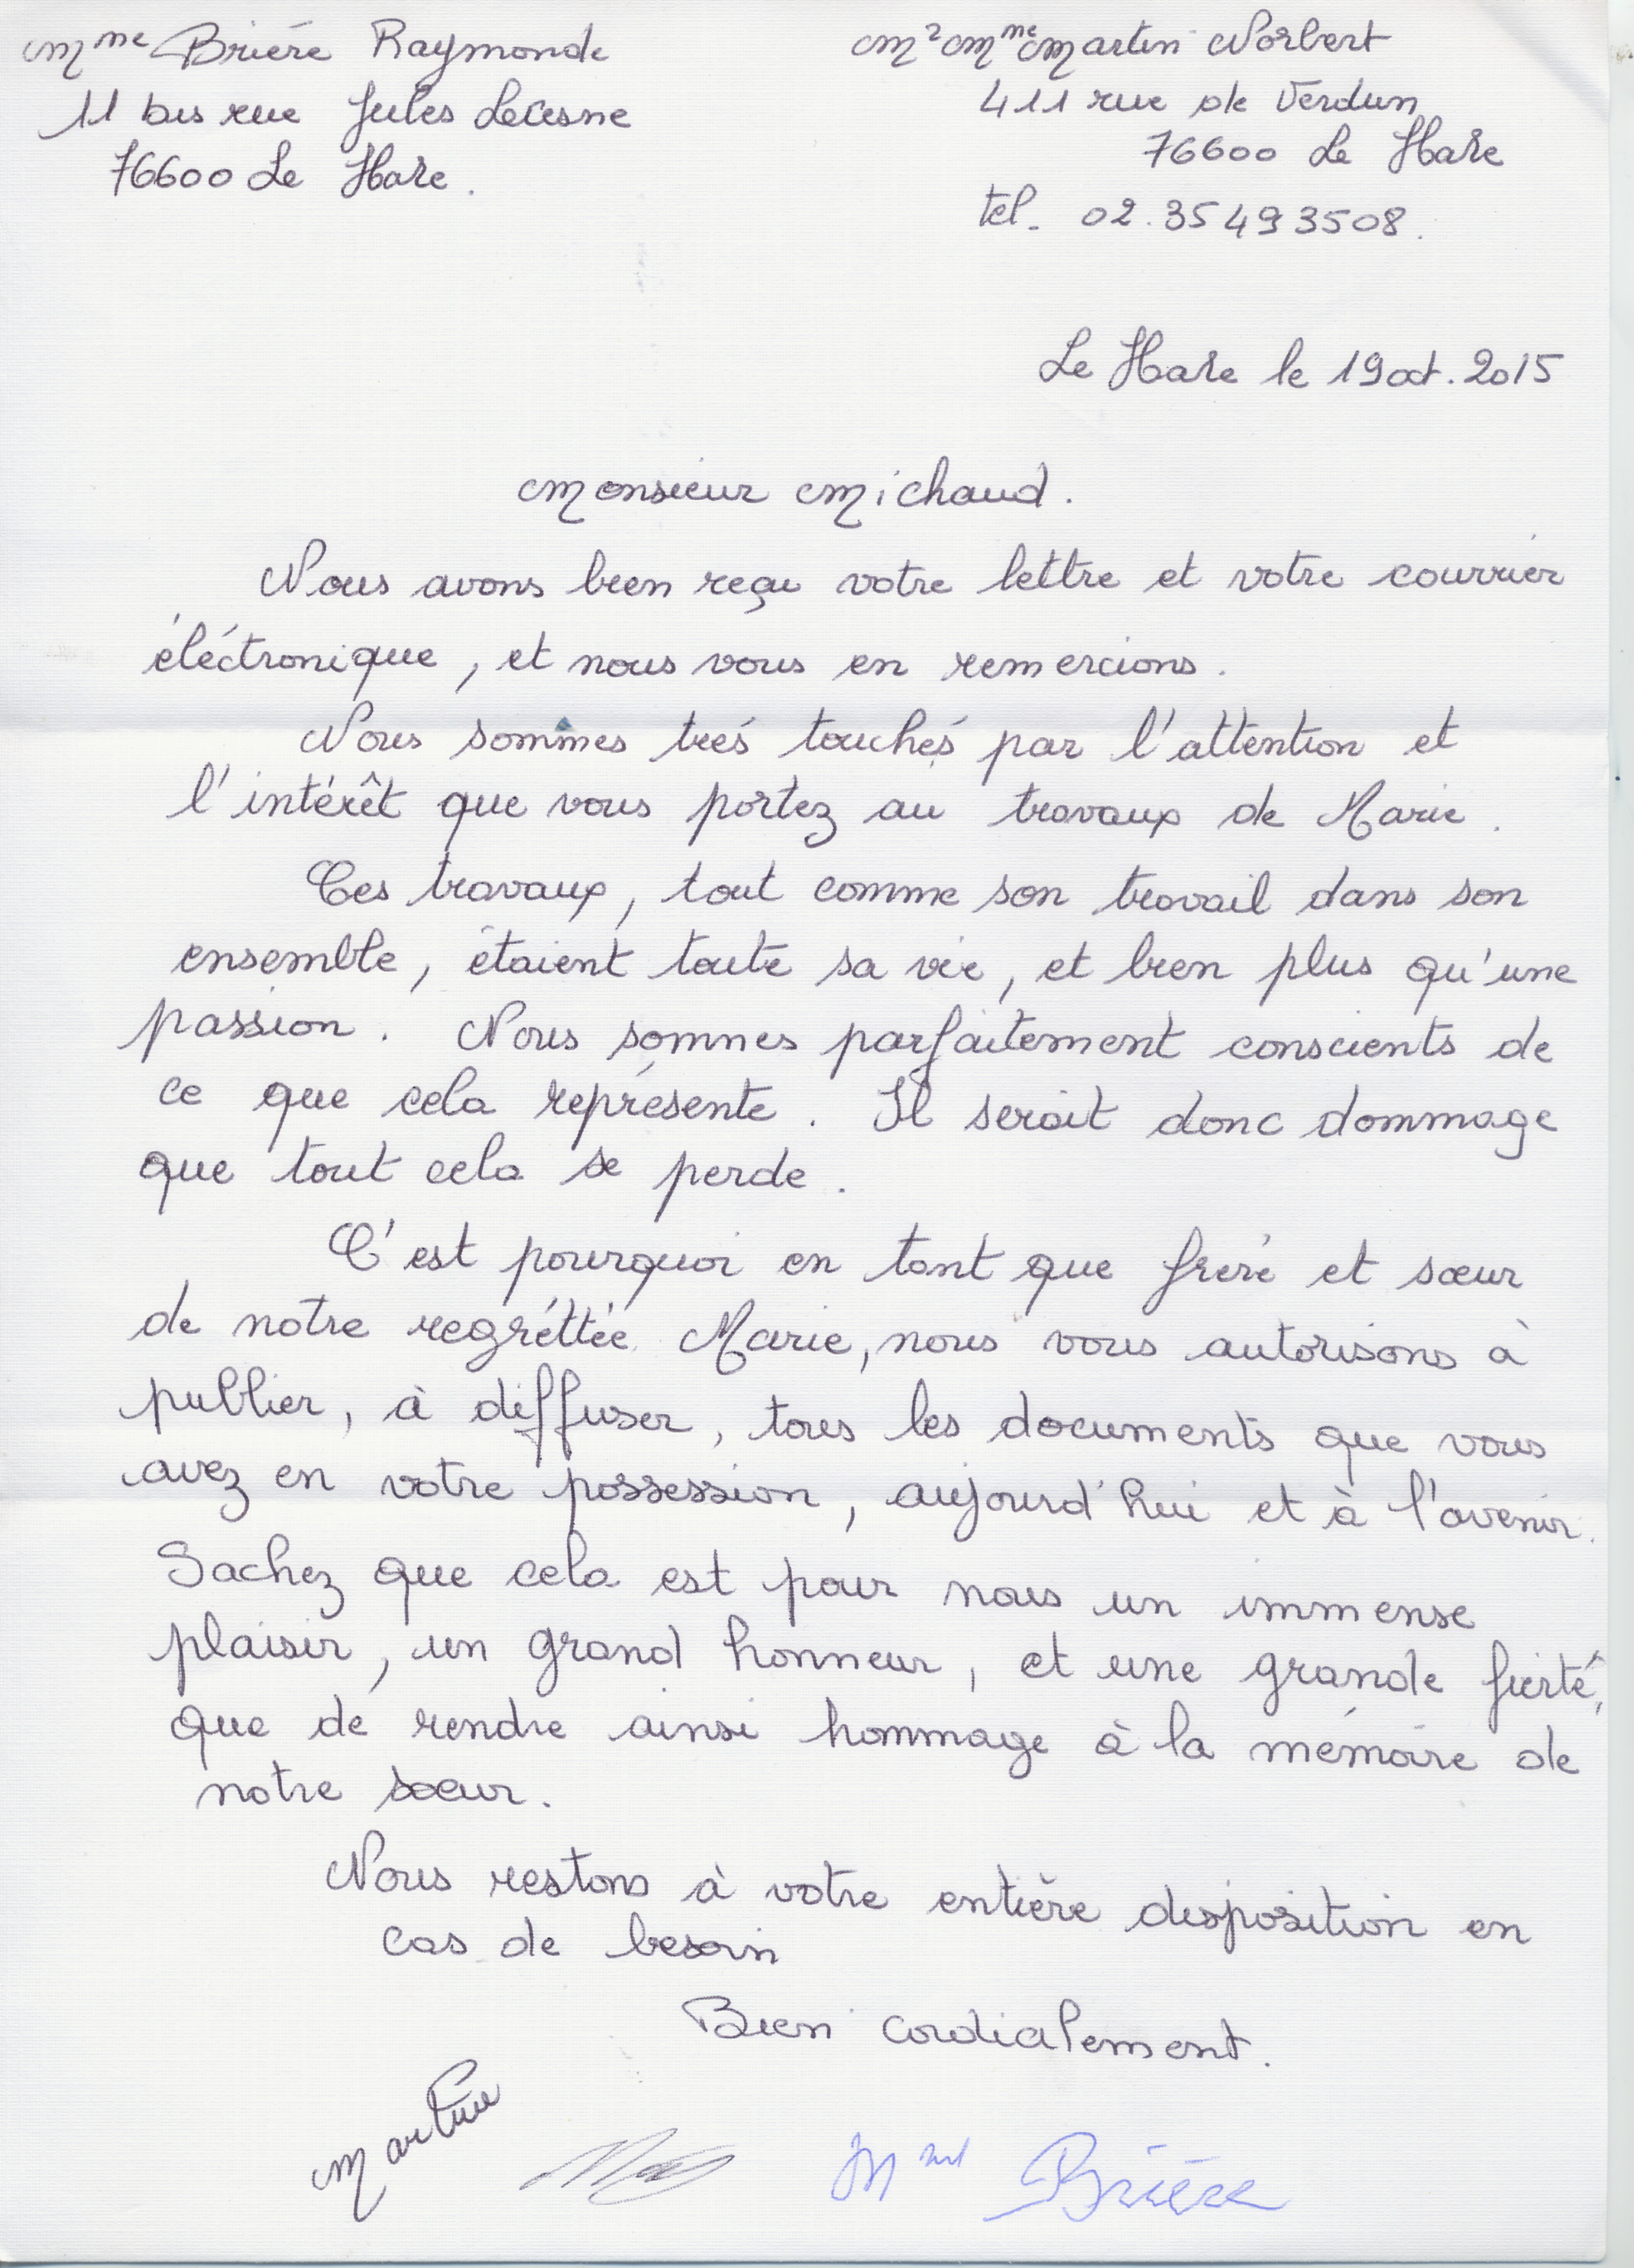 Mme Brière Raymonde
11 bis rue Jules Lecesne
76600 Le Havre.
Mr Mme Martin Norbert
411 rue de Verdun
76600 Le Havre
tel. 02.35493508.
Le Havre le 19 oct. 2015
Monsieur Michaud.
Nous avons bien reçu votre lettre et votre courrier
éléctronique, et nous vous en remercions.
Nous sommes trés touchés par l'attention et
l'intérêt que vous portez au travaux de Marie.
Ces travaux, tout comme son travail dans son
ensemble, étaient toute sa vie, et bien plus qu'une
passion. Nous sommes parfaitement conscients de
ce que cela représente. Il serait donc dommage
que tout cela se perde.
C'est pourquoi en tant que freré et sœur
de notre regréttée Marie, nous vous autorisons à
publier, à diffuser, tous les documents que vous
avez en votre possession, aujourd'hui et à l'avenir.
Sachez que cela est pour nous un immense
plaisir, un grand honneur, et une grande fierté,
que de rendre ainsi hommage à la mémoire de
notre sœur.
Nous restons à votre entière disposition en
cas de besoin
Bien cordialement.
Martin
Mme Brière